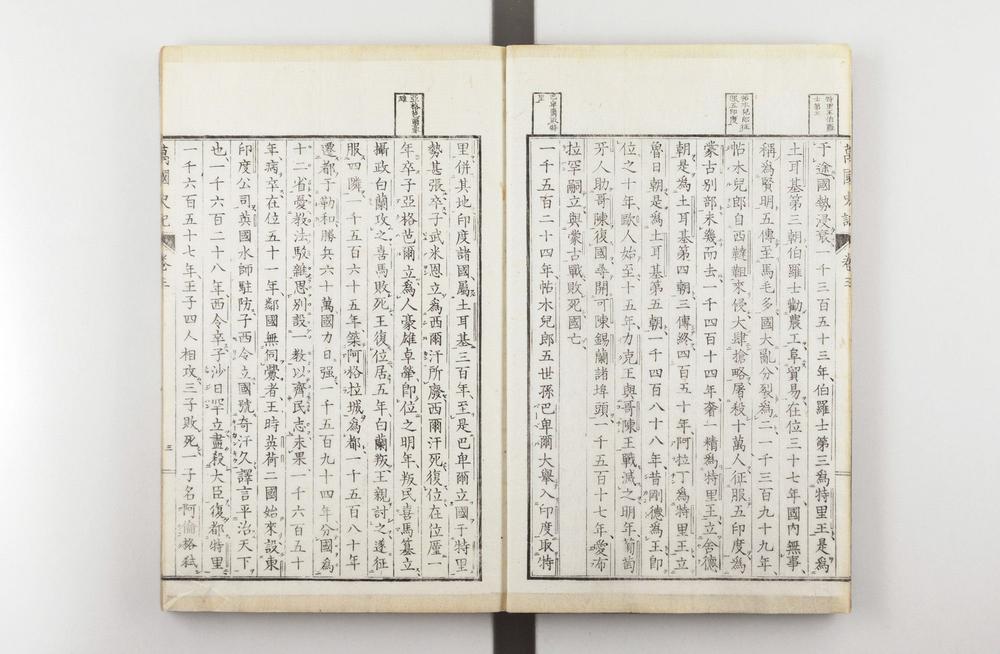 萬國史記 卷三
特里王伯羅
士第三
帖木兒郎征
服五印度
巴卑爾取特
里
于途國勢浸衰一千三百五十三年伯羅士第三爲特里王是爲
土耳基第三朝伯羅士勸農工阜貿易在位三十七年國内無事
稱爲賢明五傳至馬毛多國大亂分裂爲二一千三百九十九年
帖木兒郎自西韃靼來侵大肆搶略屠殺十萬人征服五印度爲
蒙古別部未幾而去一千四百十四年奢一精爲特里王立舍德
朝是爲土耳基第四朝三傳終四百五十年阿拉丁爲特里王立
魯日朝是爲土耳基第五朝一千四百八十八年昔剛德爲王即
位之十年歐人始至十五年力克王與哥陳王戰滅之明年葡萄
牙人助哥陳復國尋開可陳錫蘭諸埠頭一千五百十七年愛布
拉罕嗣立與蒙古戰敗死國亡
一千五百二十四年帖木兒郎五世孫巴卑爾大舉入印度取特
亞格芭爾豪
雄
里併其地印度諸國屬土耳基三百年至是巴卑爾立國于特里
勢甚張卒子武米恩立爲西爾汗所廢西爾汗死復位在位厪一
年卒子亞格芭爾立爲人豪雄卓犖即位之明年叛民喜馬篡立
攝政白蘭攻之喜馬敗死王復位居五年白蘭叛王親討之遂征
服四隣一千五百六十五年築阿格拉城爲都一千五百八十年
遷都于勒和勝兵六十萬國力日强一千五百九十四年分國爲
十二省憂教法駁雜思別設一教以齊民志未果一千六百五十
年病卒在位五十一年鄰國無伺釁者王時英荷二國始來設東
印度公司英國水師駐防子西令立國號奇汗久譯言平治天下
也一千六百二十八年西令卒子沙日罕立盡殺大臣復都特里
一千六百五十七年王子四人相攻三子敗死一子名阿倫格弑
萬國史記 卷三
三